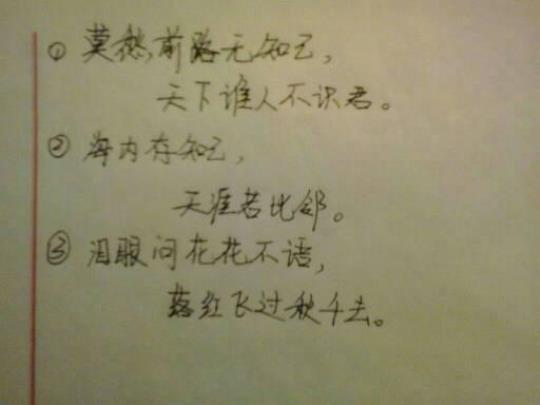 ① 莫愁,前路无知己,
天下谁人不识君。
② 海内存知己,
天涯若比邻。
③ 泪眼问花花不语,
落红飞过秋千去。